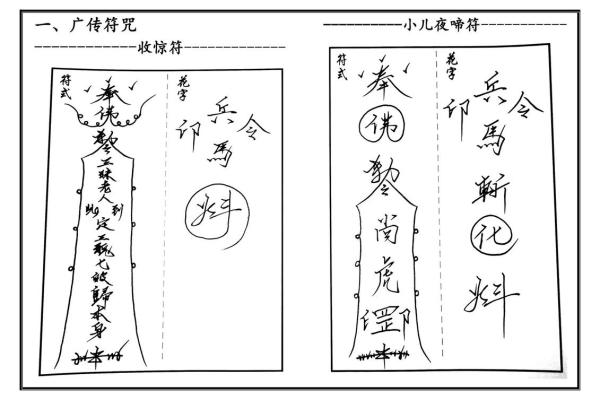 一、广传符咒
收惊符
符式
奉佛勅令
老人
到此
定三魂七魄歸本身
花字
兵馬
印
令
小儿夜啼符
符式
奉佛勅令
尚虎罡
花字
兵馬斬化
印
令